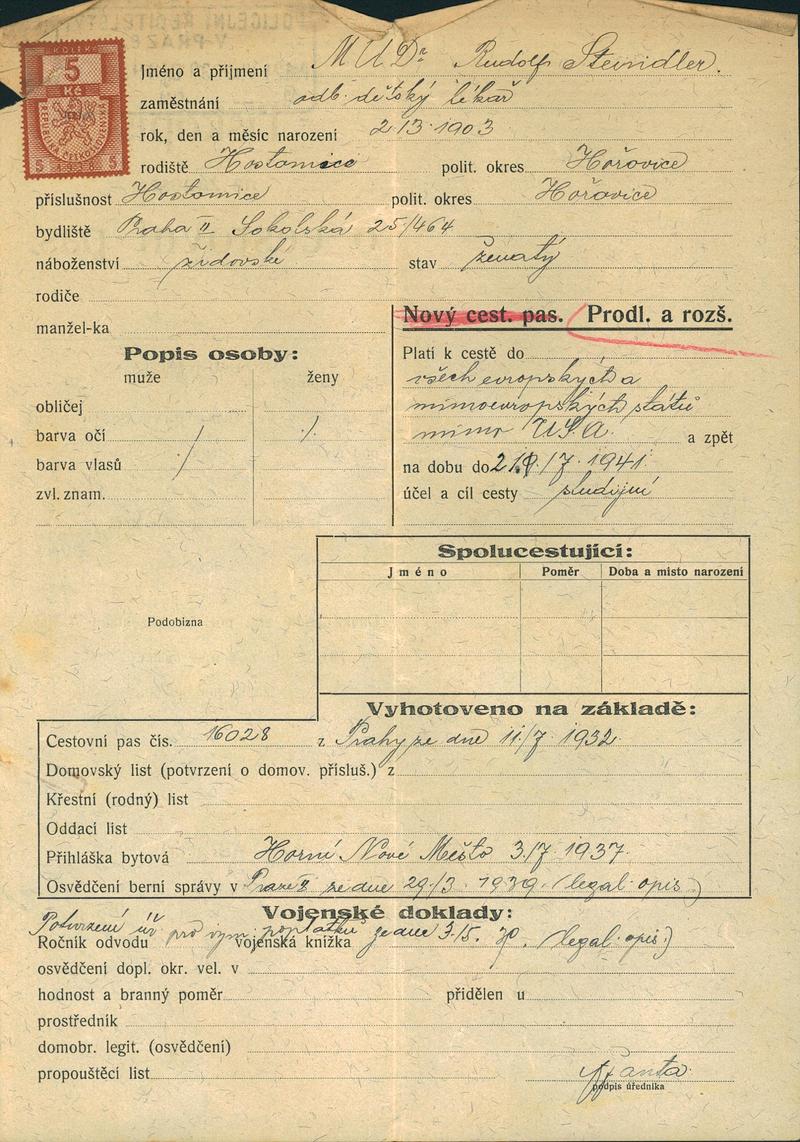 KOLEK
5
Kč
REPUBLIKA ČESKOSLOVENSKÁ
5 5
Jméno a příjmení MUDr Rudolf Steindler.
zaměstnání odb. dětský lékař
rok, den a měsíc narození 2/3 1903
rodiště Hostomice polit. okres Hořovice
příslušnost Hostomice polit. okres Hořovice
bydliště Praha II Sokolská 25/464
náboženství židovské stav ženatý
rodiče
manžel-ka
Nový cest. pas. Prodl. a rozš.
Popis osoby:
muže ženy
obličej
barva očí
barva vlasů
zvl. znam.
Platí k cestě do
všech evropských a
mimoevropských států
mimo U.S.A. a zpět
na dobu do /7. 1941
účel a cíl cesty studijní
Spolucestující:
Jméno Poměr Doba a místo narození
Podobizna
Vyhotoveno na základě:
Cestovní pas čís. 16028 z Prahy ze dne 11/7 1932
Domovský list (potvrzení o domov. přísluš.) z
Křestní (rodný) list
Oddací list
Přihláška bytová Horní Nové Město 3/7 1937
Osvědčení berní správy v Praze II ze dne 29/3 1939 (legal. opis)
Vojenské doklady:
Potvrzení úř pro vym. poplatků ze dne 3/5. (legal. opis)
Ročník odvodu vojenská knížka
osvědčení dopl. okr. vel. v
hodnost a branný poměr přidělen u
prostředník
domobr. legit. (osvědčení)
propouštěcí list
podpis úředníka